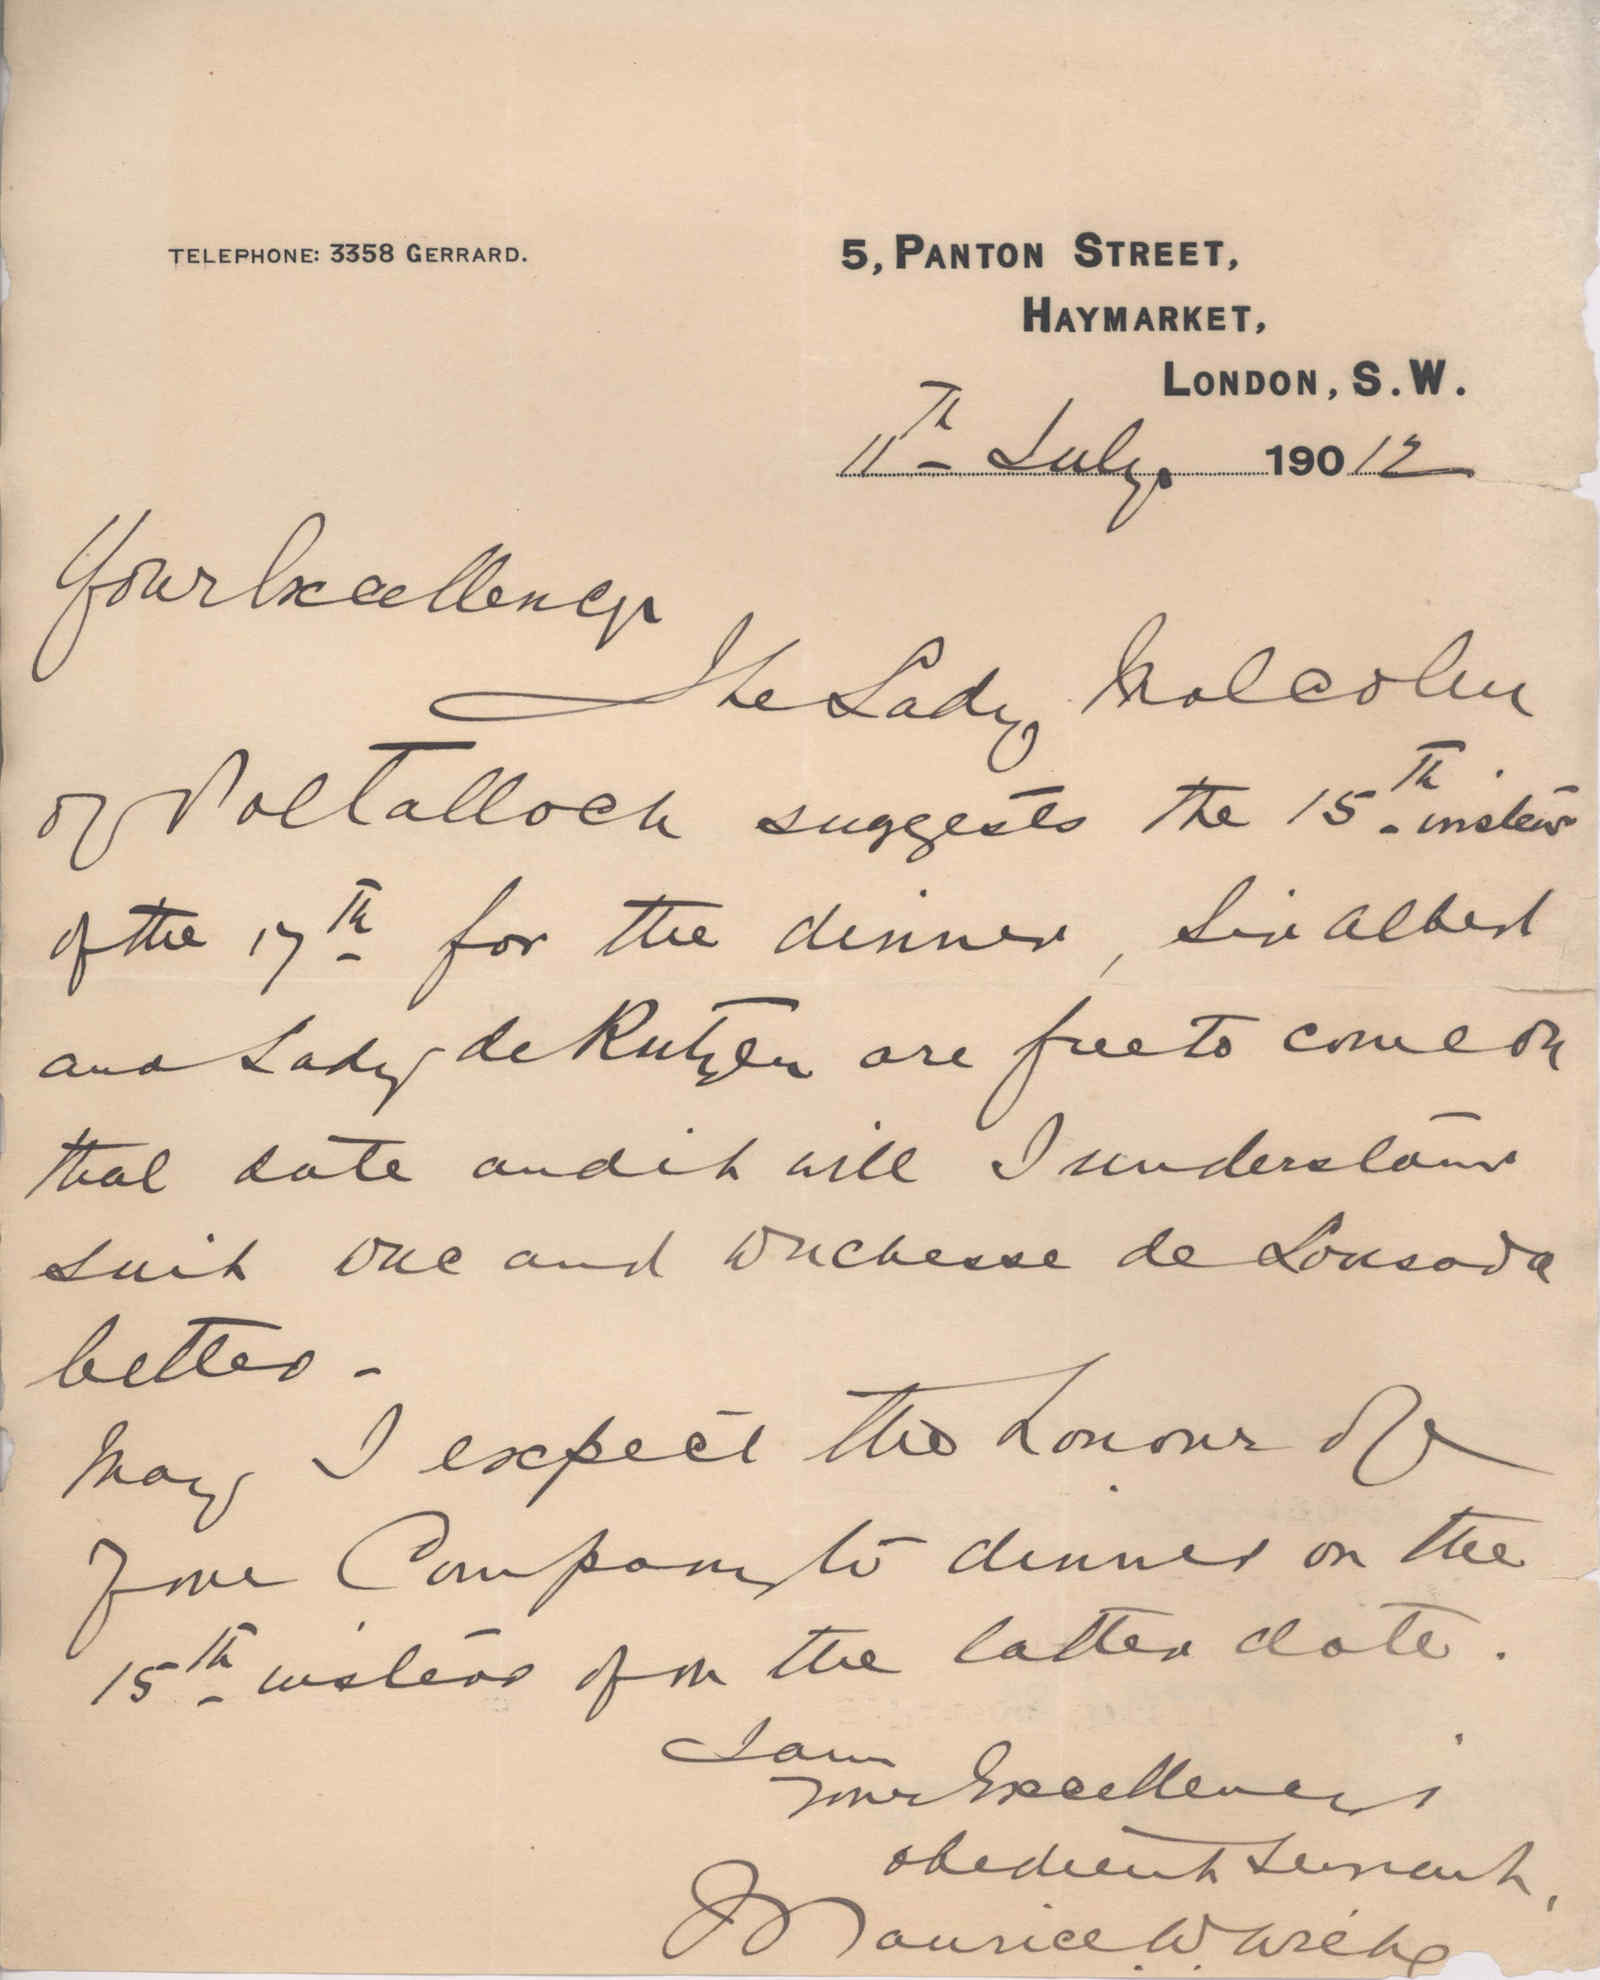 TELEPHONE: 3358 GERRARD.
5, PANTON STREET,
HAYMARKET,
LONDON, S.W.
11th July, 190 12
Your Excellency
The Lady Malcolm
of Poltalloch suggests the 15th instead
of the 17th for the dinner, Sir Albert
and Lady de Rutzen are free to come on
that date and it will I understand
suit Duc and Duchesse de Lousada
better -
May I expect the honour of
your Company to dinner on the
15th instead of on the latter date.
I am
Your Excellency's
obedient Servant,
Maurice W.